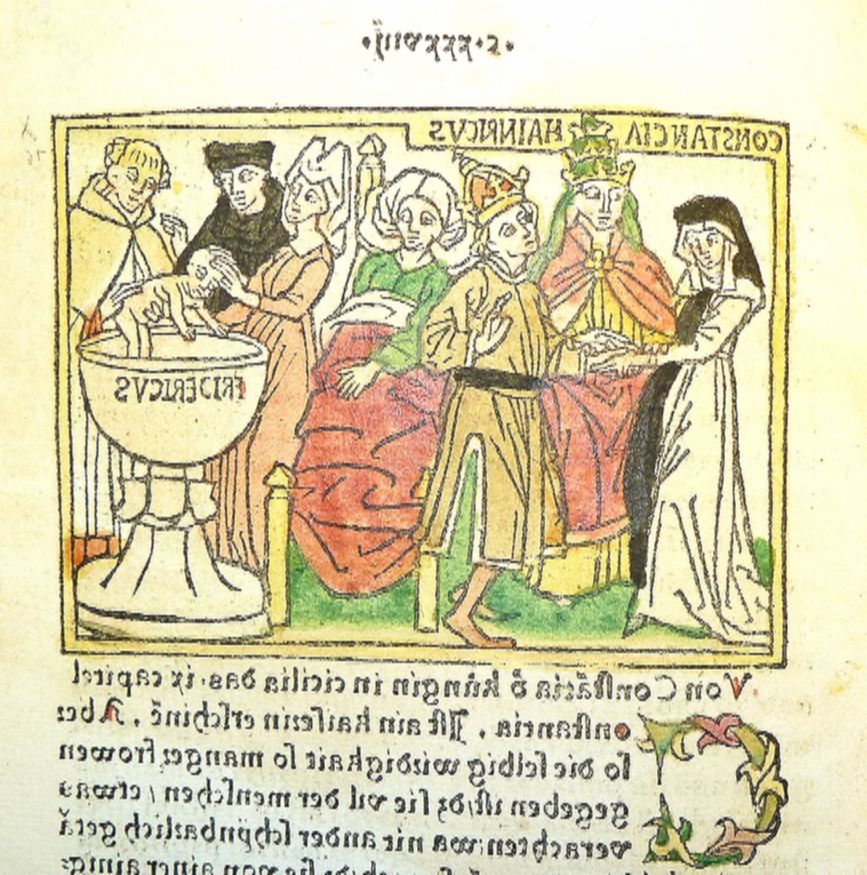 ·c·xxxviij·
CONSTANCIA HAINRICVS
FRIDERICVS
Von Constãcia d̕ küngin in cicilia das .ix capitel
onstancia . Ist ain kaiserin erschinẽ . Aber
so die selbig wirdigkait so manger frowen
gegeben ist/dz sie vil der menschen / etwas
verachten/wa nit ander schynbarlich getă